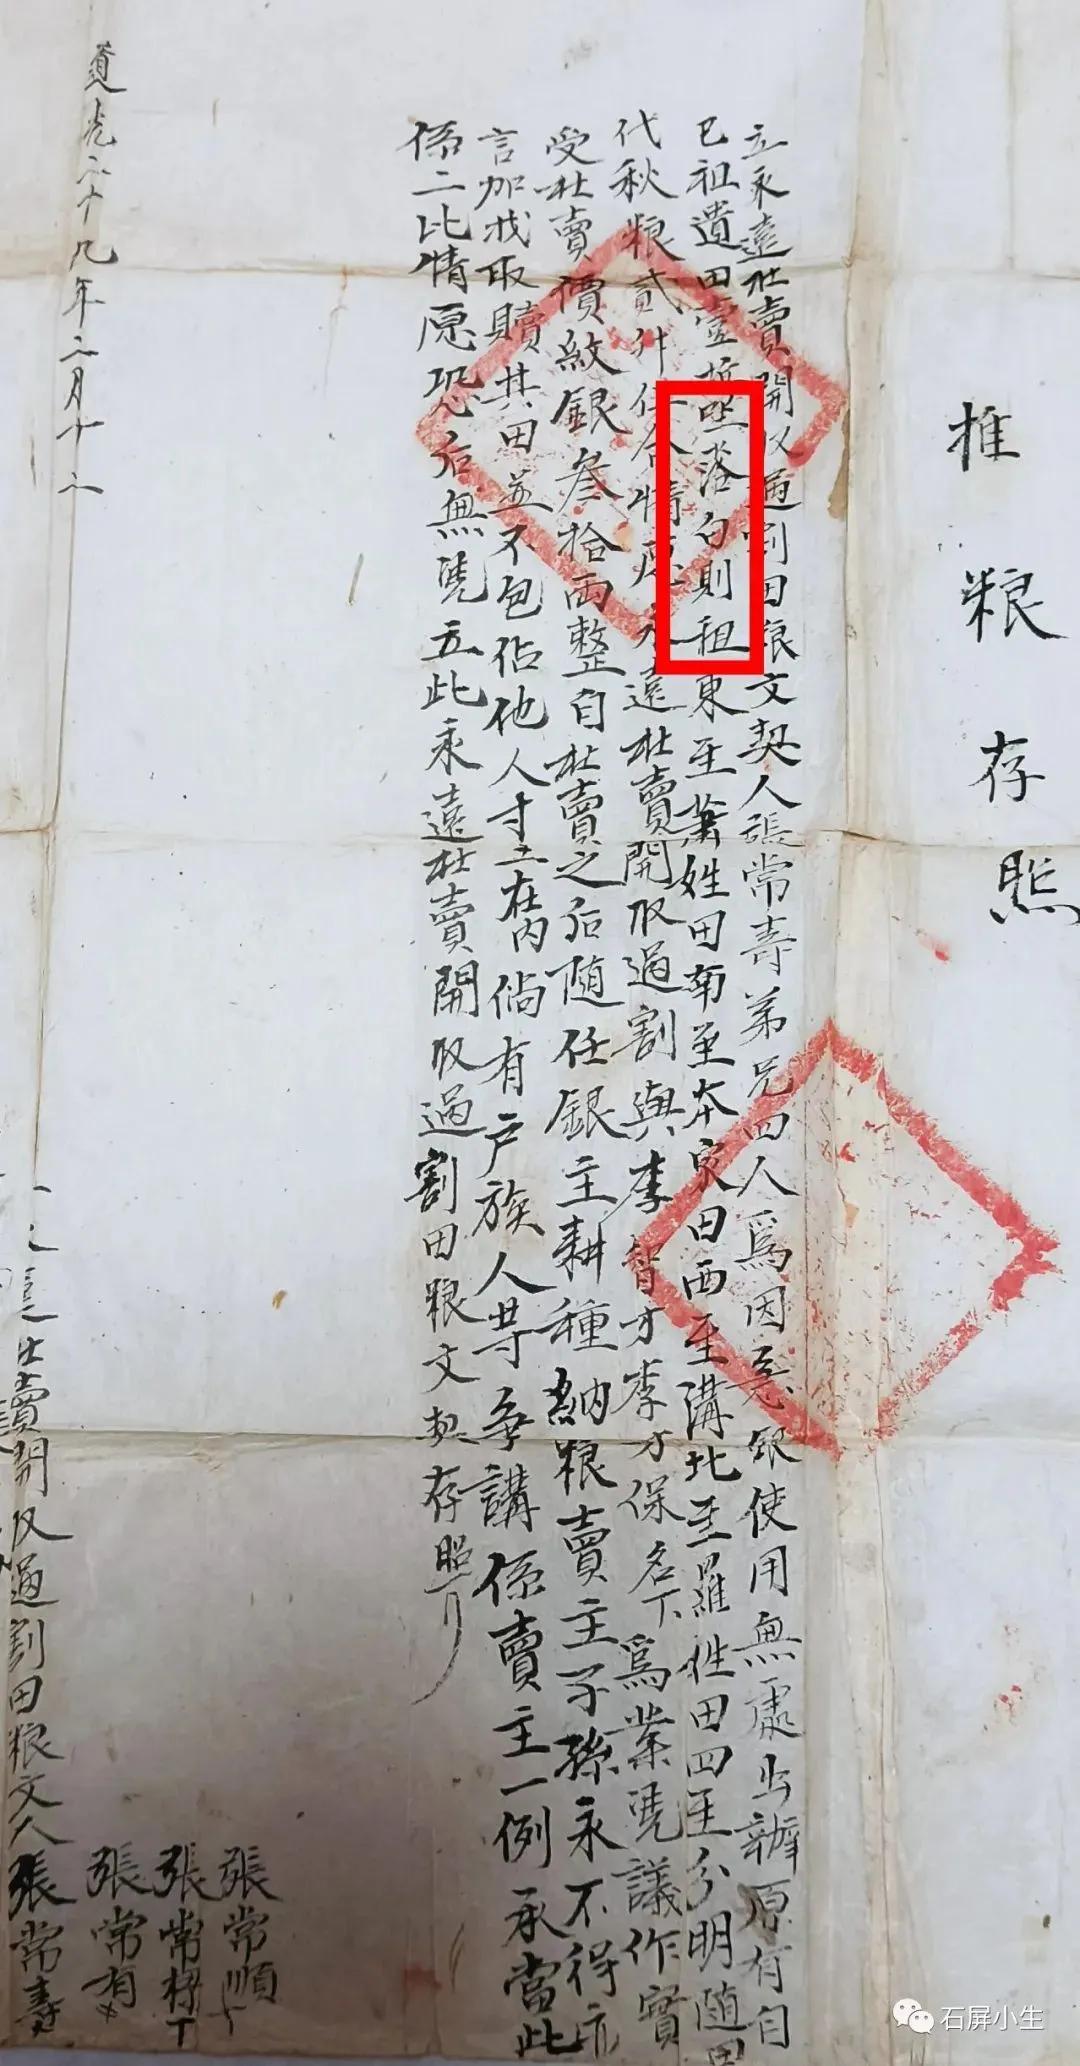 推粮存照
立永遠杜賣開收過割田粮文契人張常壽弟兄四人爲因急銀使用無處出辦原有自
已祖遺田壹坵坐落白則租東至葉姓田南至本家田西至溝北至羅姓田四至分明随田
代秋粮貳升任合情愿永遠杜賣開收過割與李智才李才保名下爲業凴議作實
受杜賣價紋銀叁拾両整自杜賣之后随任銀主耕種納粮賣主子孫永不得
言加找取贖其田並不包佔他人寸土在内倘有户族人等争講係賣主一例承當此
係二比情愿恐后無凴立此永遠杜賣開收過割田粮文契存照
道光二十九年二月十二
遠杜賣開收過割田粮文人張常壽
張常有
張常
張常順
石屏小生